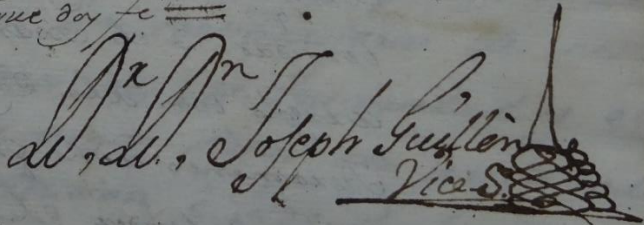 que doy fe
Dr, Dn, Joseph Guillèn
Vice S.